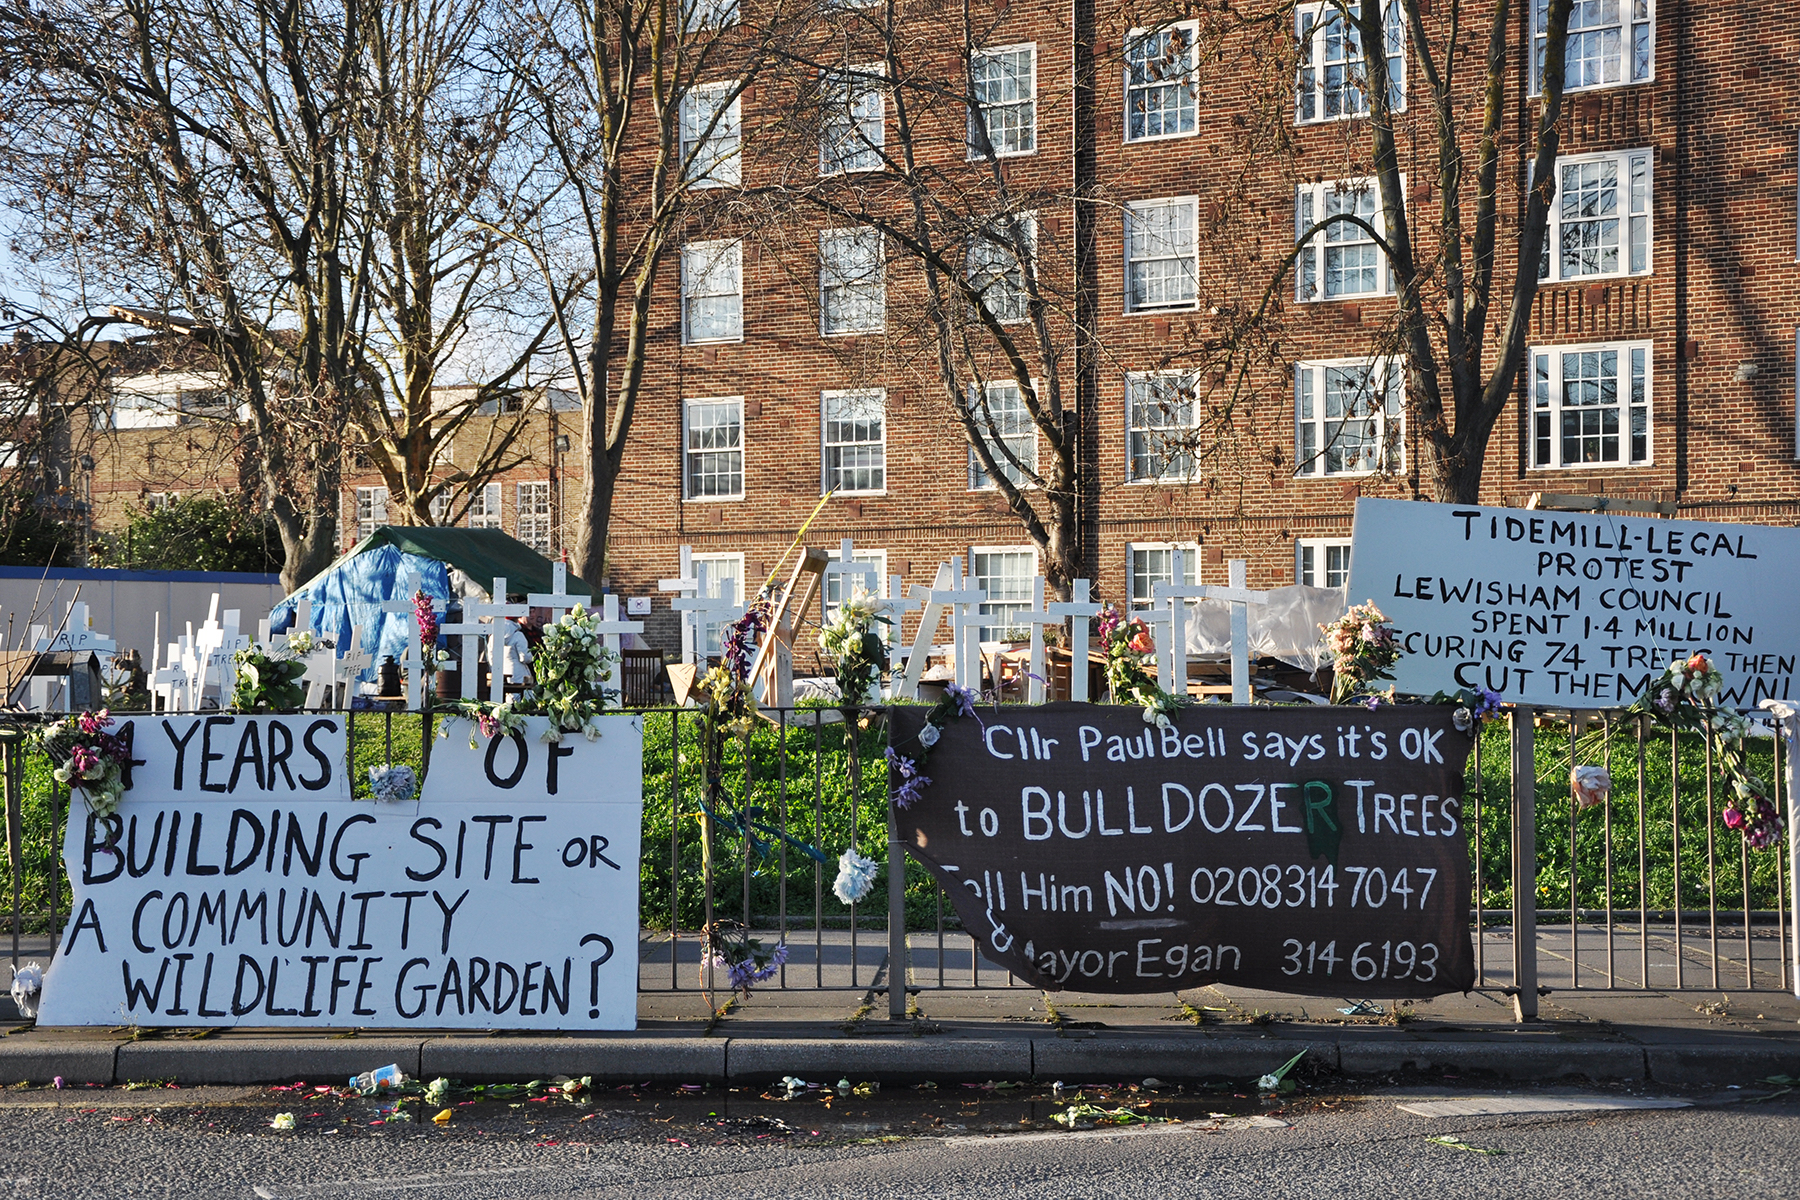 RIP
TREE
RIP
TREE
RIP
TREE
TIDEMILL-LEGAL
PROTEST
LEWISHAM COUNCIL
SPENT 1.4 MILLION
ECURING 74 TREES THEN
CUT THEM OWN!
4 YEARS OF
BUILDING SITE OR
A COMMUNITY
WILDLIFE GARDEN?
Cllr Paul Bell says it's OK
to BULLDOZER TREES
Tell Him NO! 0208 314 7047
& Mayor Egan 314 6193